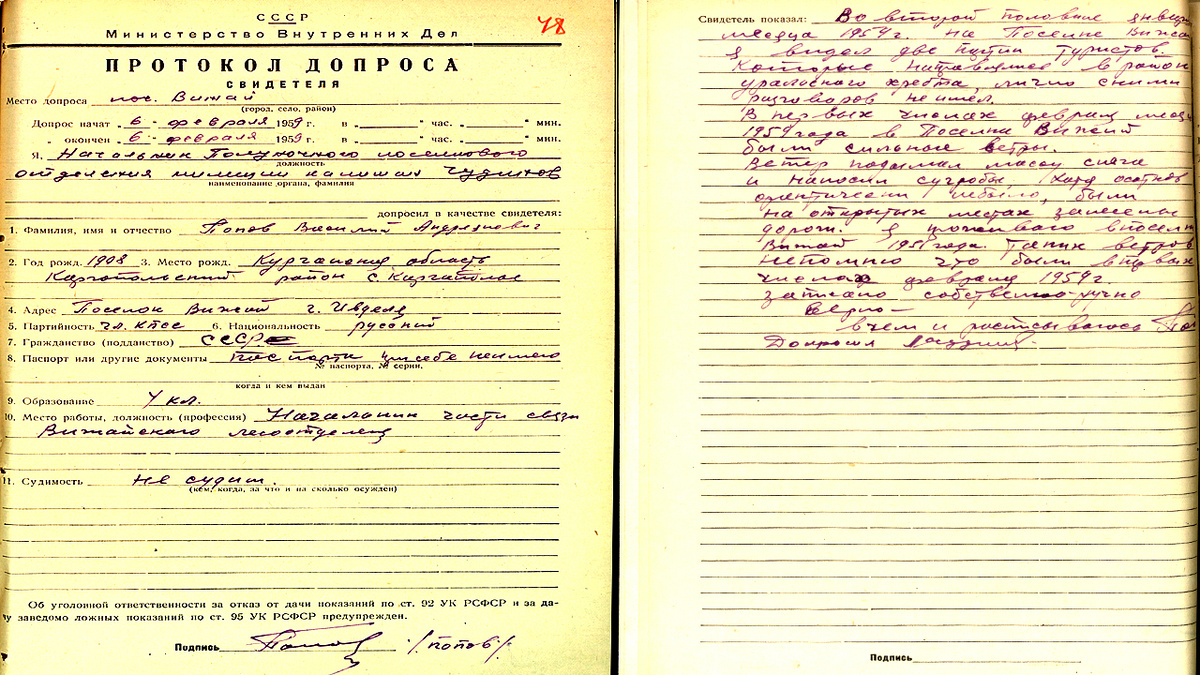 СССР
48
Министерство Внутренних Дел
ПРОТОКОЛ ДОПРОСА
СВИДЕТЕЛЯ
Место допроса пос. Вижай
(город, село, район)
Допрос начат „ 6 - февраля 1959 г. в „ “ час. “ мин.
„ окончен 6 - февраля 1959 г. в „ “ час. “ мин.
Я, Начальник Полуночного поселкового
должность
отделения милиции капитан Чудинов
наименование органа, фамилия
допросил в качестве свидетеля:
1. Фамилия, имя и отчество Попов Василий Андреевич
2. Год рожд. 1908 3. Место рожд. Курганская область
район с.
4. Адрес Поселок Вижай г. Ивделя
5. Партийность чл. КПСС 6. Национальность русский
7. Гражданство (подданство) СССР
8. Паспорт или другие документы паспорта при себе неимеет
№ паспорта, № серии,
когда и кем выдан
9. Образование 4 кл.
10. Место работы, должность (профессия) Начальник части связи
Вижайского
11. Судимость не судим.
(кем, когда, за что и на сколько осужден)
Об уголовной ответственности за отказ от дачи показаний по ст. 92 УК РСФСР и за да-
чу заведомо ложных показаний по ст. 95 УК РСФСР предупрежден.
Подпись Попов /попов/
Свидетель показал: Во второй половине январ
месяца 1959 г. на Поселке Вижай
я видел две партии туристов.
Которые направлялись в район
уральского хребта, лично сними
разговоров не имел.
В первых числах февраля меся
1959 года в Поселке Вижай
были сильные ветры.
Ветер поднимал массу снега
и наносил сугробы, хотя осадков
фактически небыло, были
на открытых местах занесены
дороги. Я проживаю в поселке
Вижай 1951 года. Таких ветров
непомню что были в первых
числах февраля 1959 г.
записано собственно-ручно
верно —
в чем и расписываюсь По
Допросил
Подпись